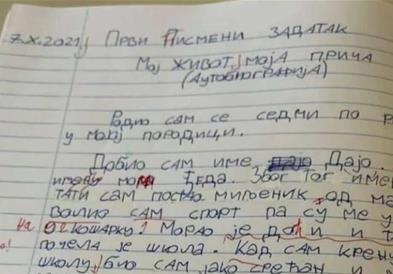 7.X.2021. Први писмени задатак
Мој живот, моја прича
(Аутобиографија)
Родио сам се седми по р
у мојој породици.
Добио сам име Дајо.
имену мога ђеда. Због тог имен
тати сам постао миљеник од ма
волио сам спорт па су ме у
на кошарку! Морао је доћи и т
почела је школа. Кад сам крену
школу, био сам јако срећан и